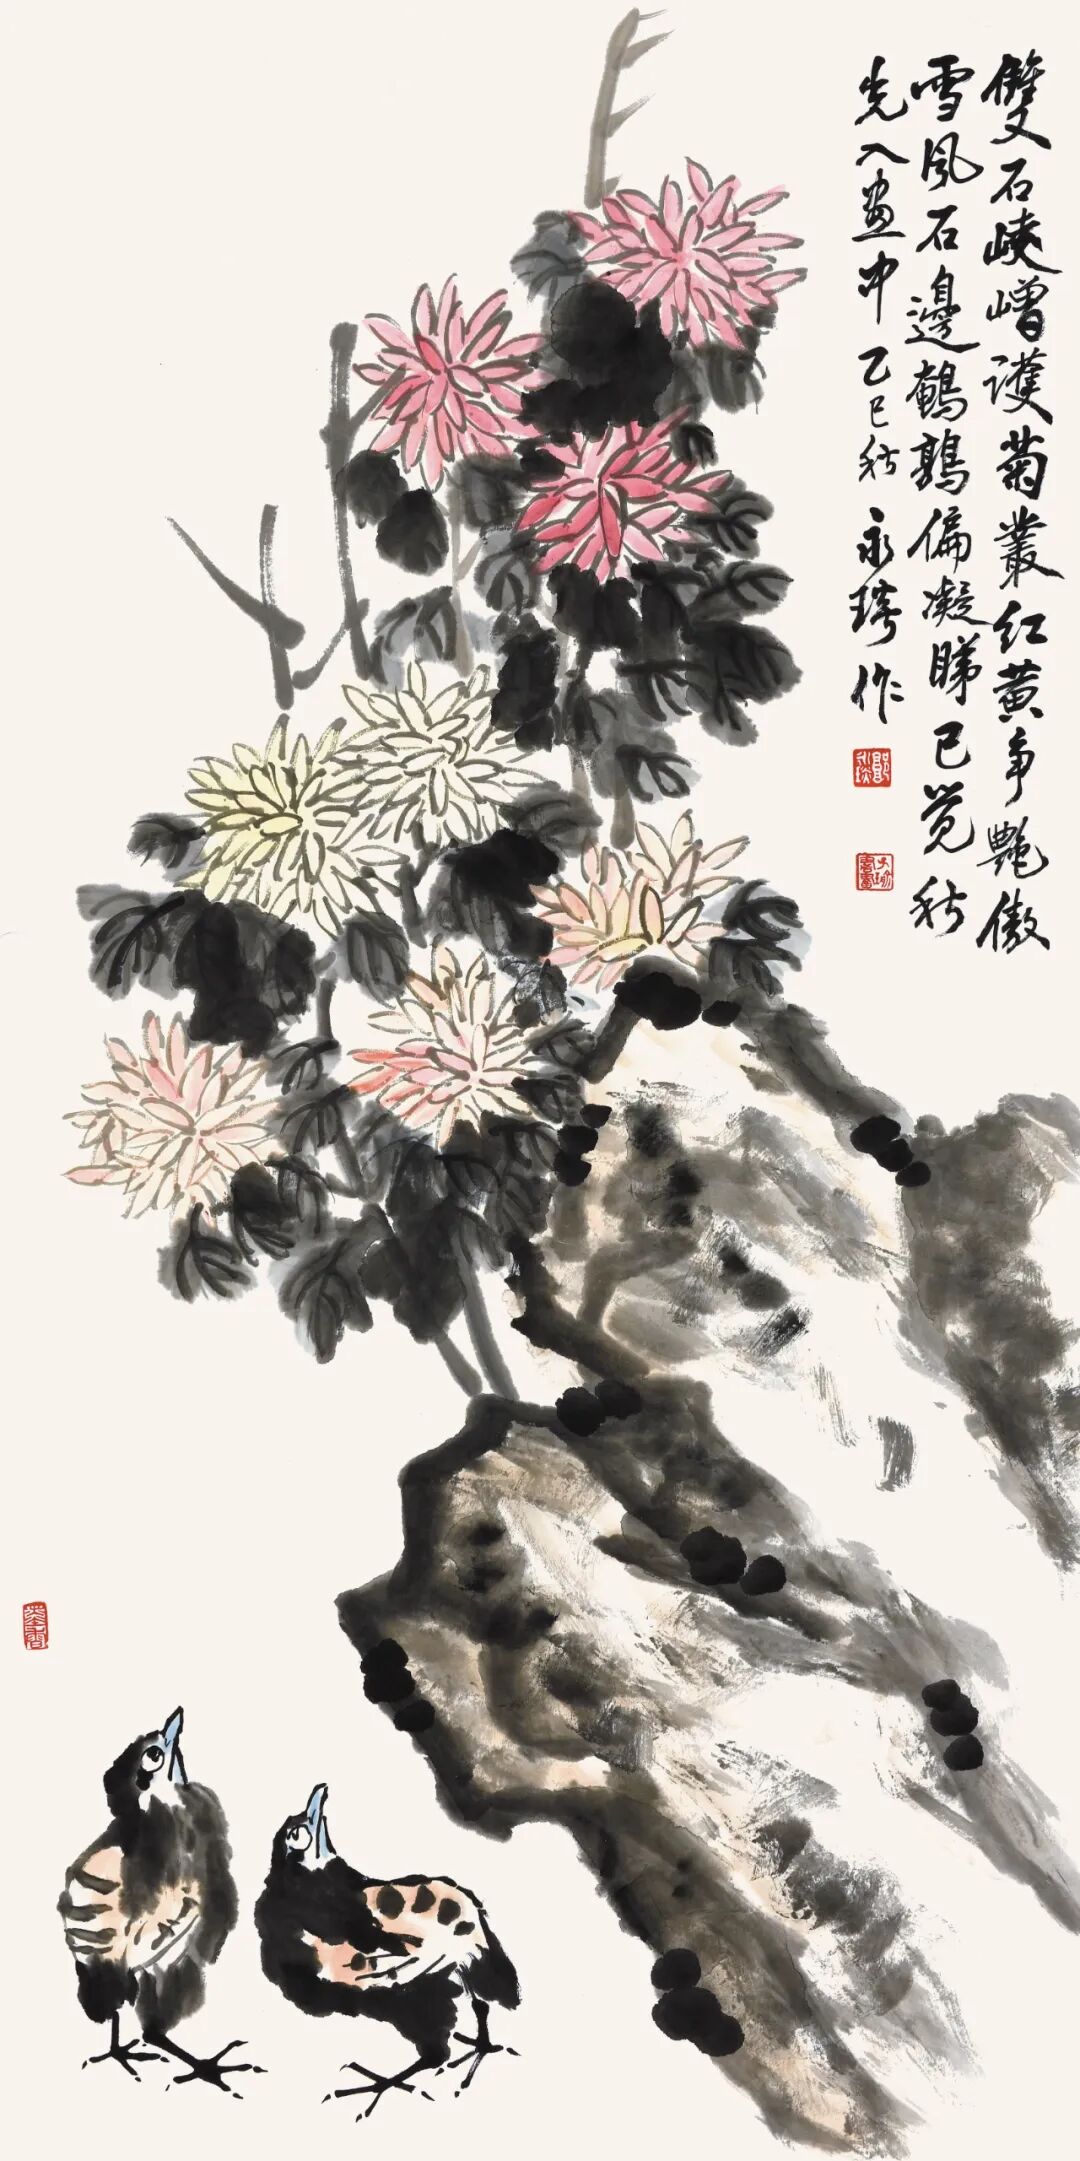 雙石崚嶒護菊叢红黄争艷傲
雪風石邊鵪鶉偏凝睇已覺秋
先入畫中乙巳秋永瑹作